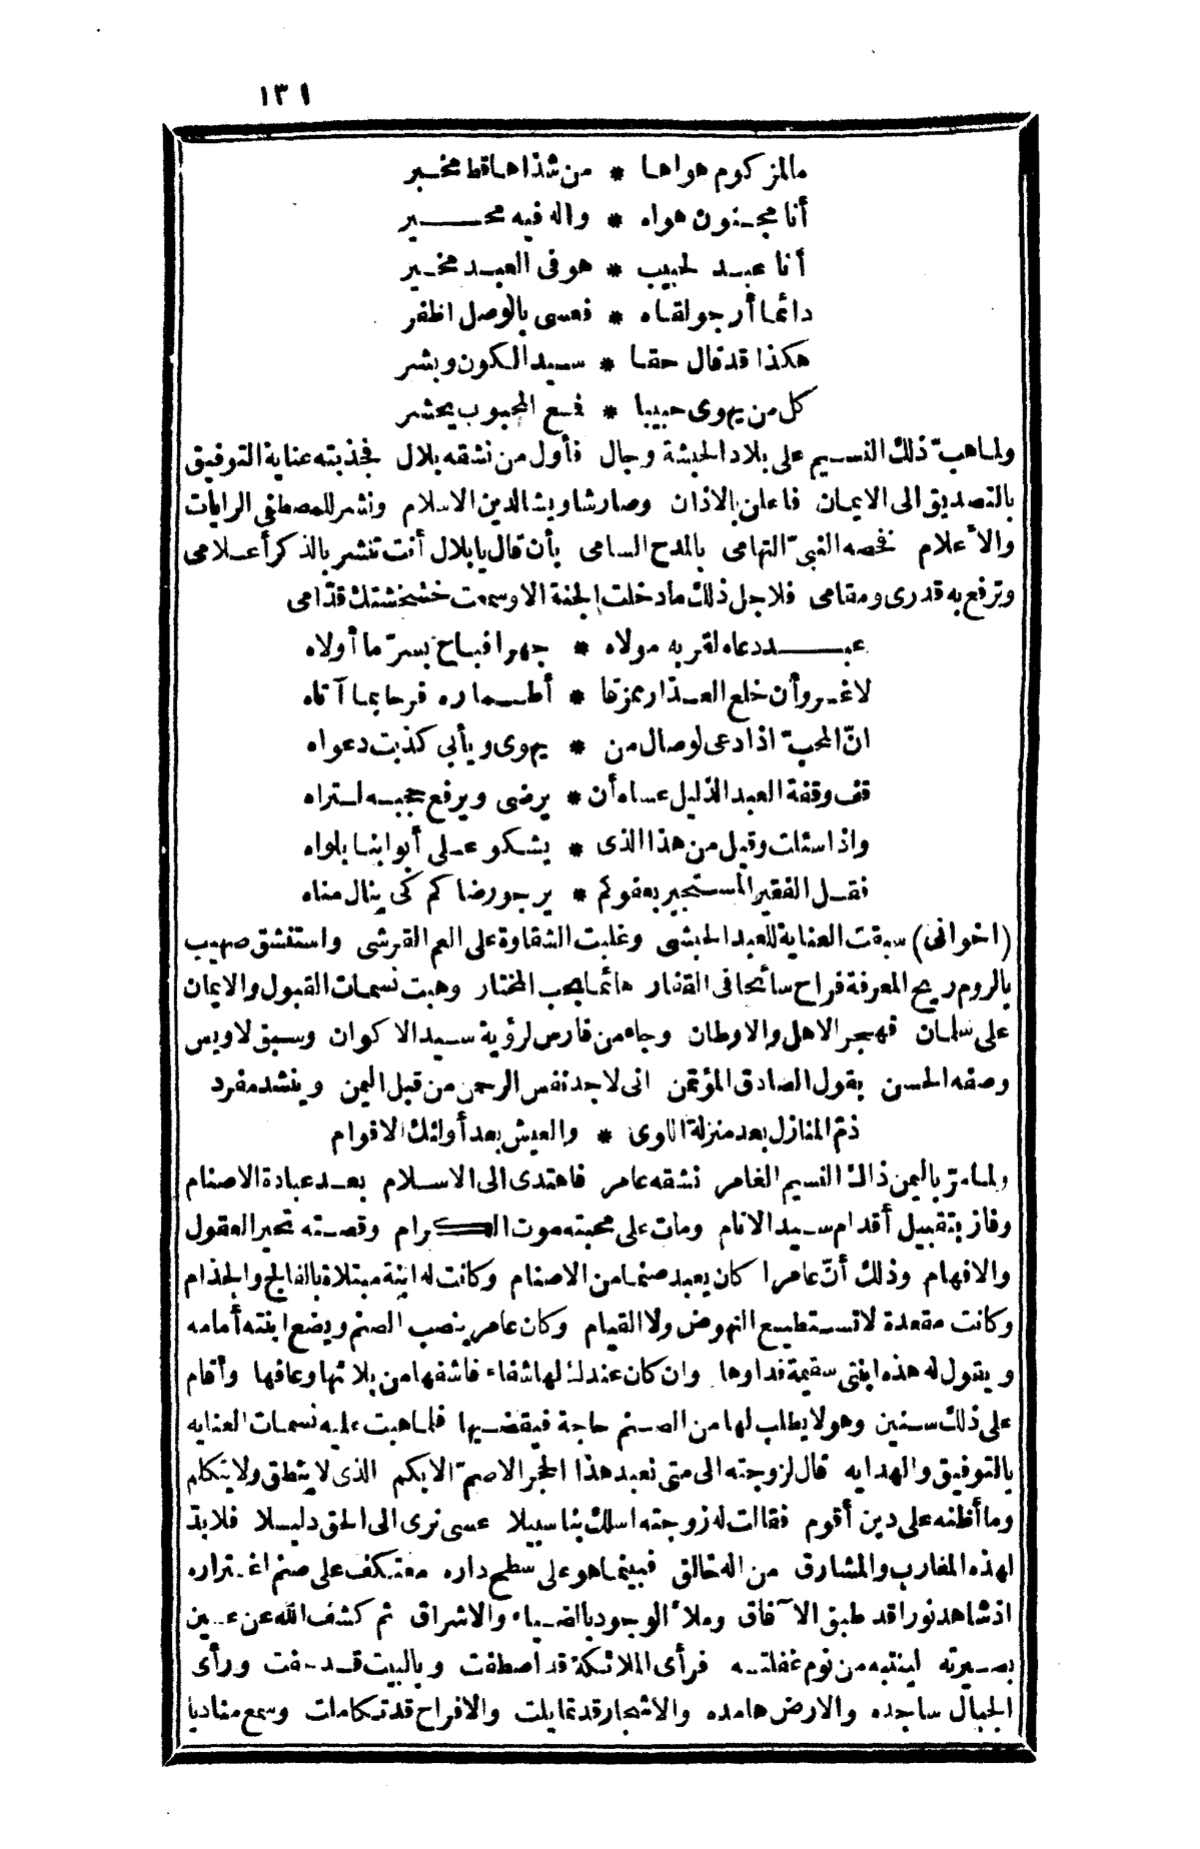 ١٣١
مالمزكوم هواها * من شذاها قط مخبر
أنا مجنون هواه * واله فيه محير
أنا عبد لحبيب * هو فى العبد مخير
دائما أرجو لقاه * فعسى بالوصل اظفر
هكذا قد قال حقا * سيد الكون وبشر
كل من يهوى حبيبا * فمع المحبوب يحشر
ولما هبّ ذلك النسيم على بلاد الحبشة وجال فأول من نشقه بلال فجذبته عناية التوفيق
بالتصديق الى الايمان فاعلن بالاذان وصار شاويشا لدين الاسلام ونشر للمصطفى الرايات
والأعلام فخصه النبىّ التهامى بالمدح السامى بأن قال يا بلال أنت تنشر بالذكر أعلامى
وترفع به قدرى ومقامى فلاجل ذلك ما دخلت الجنة الا وسمعت خشخشتك قدّامى
عبد دعاه لقربه مولاه * جهرا فباح بسرّ ما أولاه
لا غرو أن خلع العذار ممزقا * أطماره فرحا بما آتاه
انّ المحبّ اذا دعى لوصال من * يهوى ويأبى كذبت دعواه
قف وقفة العبد الذليل عساه أن * يرضى ويرفع حجبه لتراه
واذا سئلت وقيل من هذا الذى * يشكو على أبوابنا بلواه
فقل الفقير المستجير بعفوكم * يرجو رضاكم كى ينال مناه
(اخوانى) سبقت العناية للعبد الحبشى وغلبت الشقاوة على العم القرشى واستنشق صهيب
بالروم ريح المعرفة فراح سائحا فى القفار هائما بحب المختار وهبت نسمات القبول والايمان
على سلمان فهجر الاهل والاوطان وجاء من فارس لرؤية سيد الاكوان وسبق لاويس
وصفه الحسن بقول الصادق المؤتمن انى لاجد نفس الرحمن من قبل اليمن وينشد مفرد
ذمّ المنازل بعد منزلة اللوى * والعيش بعد أولئك الاقوام
ولما مرّ باليمن ذاك النسيم الغامر نشقه عامر فاهتدى الى الاسلام بعد عبادة الاصنام
وفاز بتقبيل أقدام سيد الانام ومات على محبته موت الكرام وقصته تحير العقول
والافهام وذلك أنّ عامرا كان يعبد صنما من الاصنام وكانت له ابنة مبتلاة بالفالج والجذام
وكانت مقعدة لا تستطيع النهوض ولا القيام وكان عامر ينصب الصنم ويضع ابنته أمامه
ويقول له هذه ابنتى سقيمة فداوها وان كان عندك لها شفاء فاشفها من بلائها وعافها وأقام
على ذلك سنين وهو لا يطلب لها من الصنم حاجة فيقضيها فلما هبت عليه نسمات العنايه
بالتوفيق والهدايه قال لزوجته الى متى نعبد هذا الحجر الاصمّ الابكم الذى لا ينطق ولا يتكلم
وما أظننه على دين أقوم فقالت له زوجته اسلك بنا سبيلا عسى نرى الى الحق دليلا فلابدّ
لهذه المغارب والمشارق من اله خالق فبينما هو على سطح داره معتكف على صنم اغتراره
اذ شاهد نورا قد طبق الآفاق وملأ الوجود بالضياء والاشراق ثم كشف الله عن عين
بصيرته لينتبه من نوم غفلته فرأى الملائكة قد اصطفت وبالبيت قد حفت ورأى
الجبال ساجده والارض هامده والاشجار قد تمايلت والافراح قد تكاملت وسمع مناديا